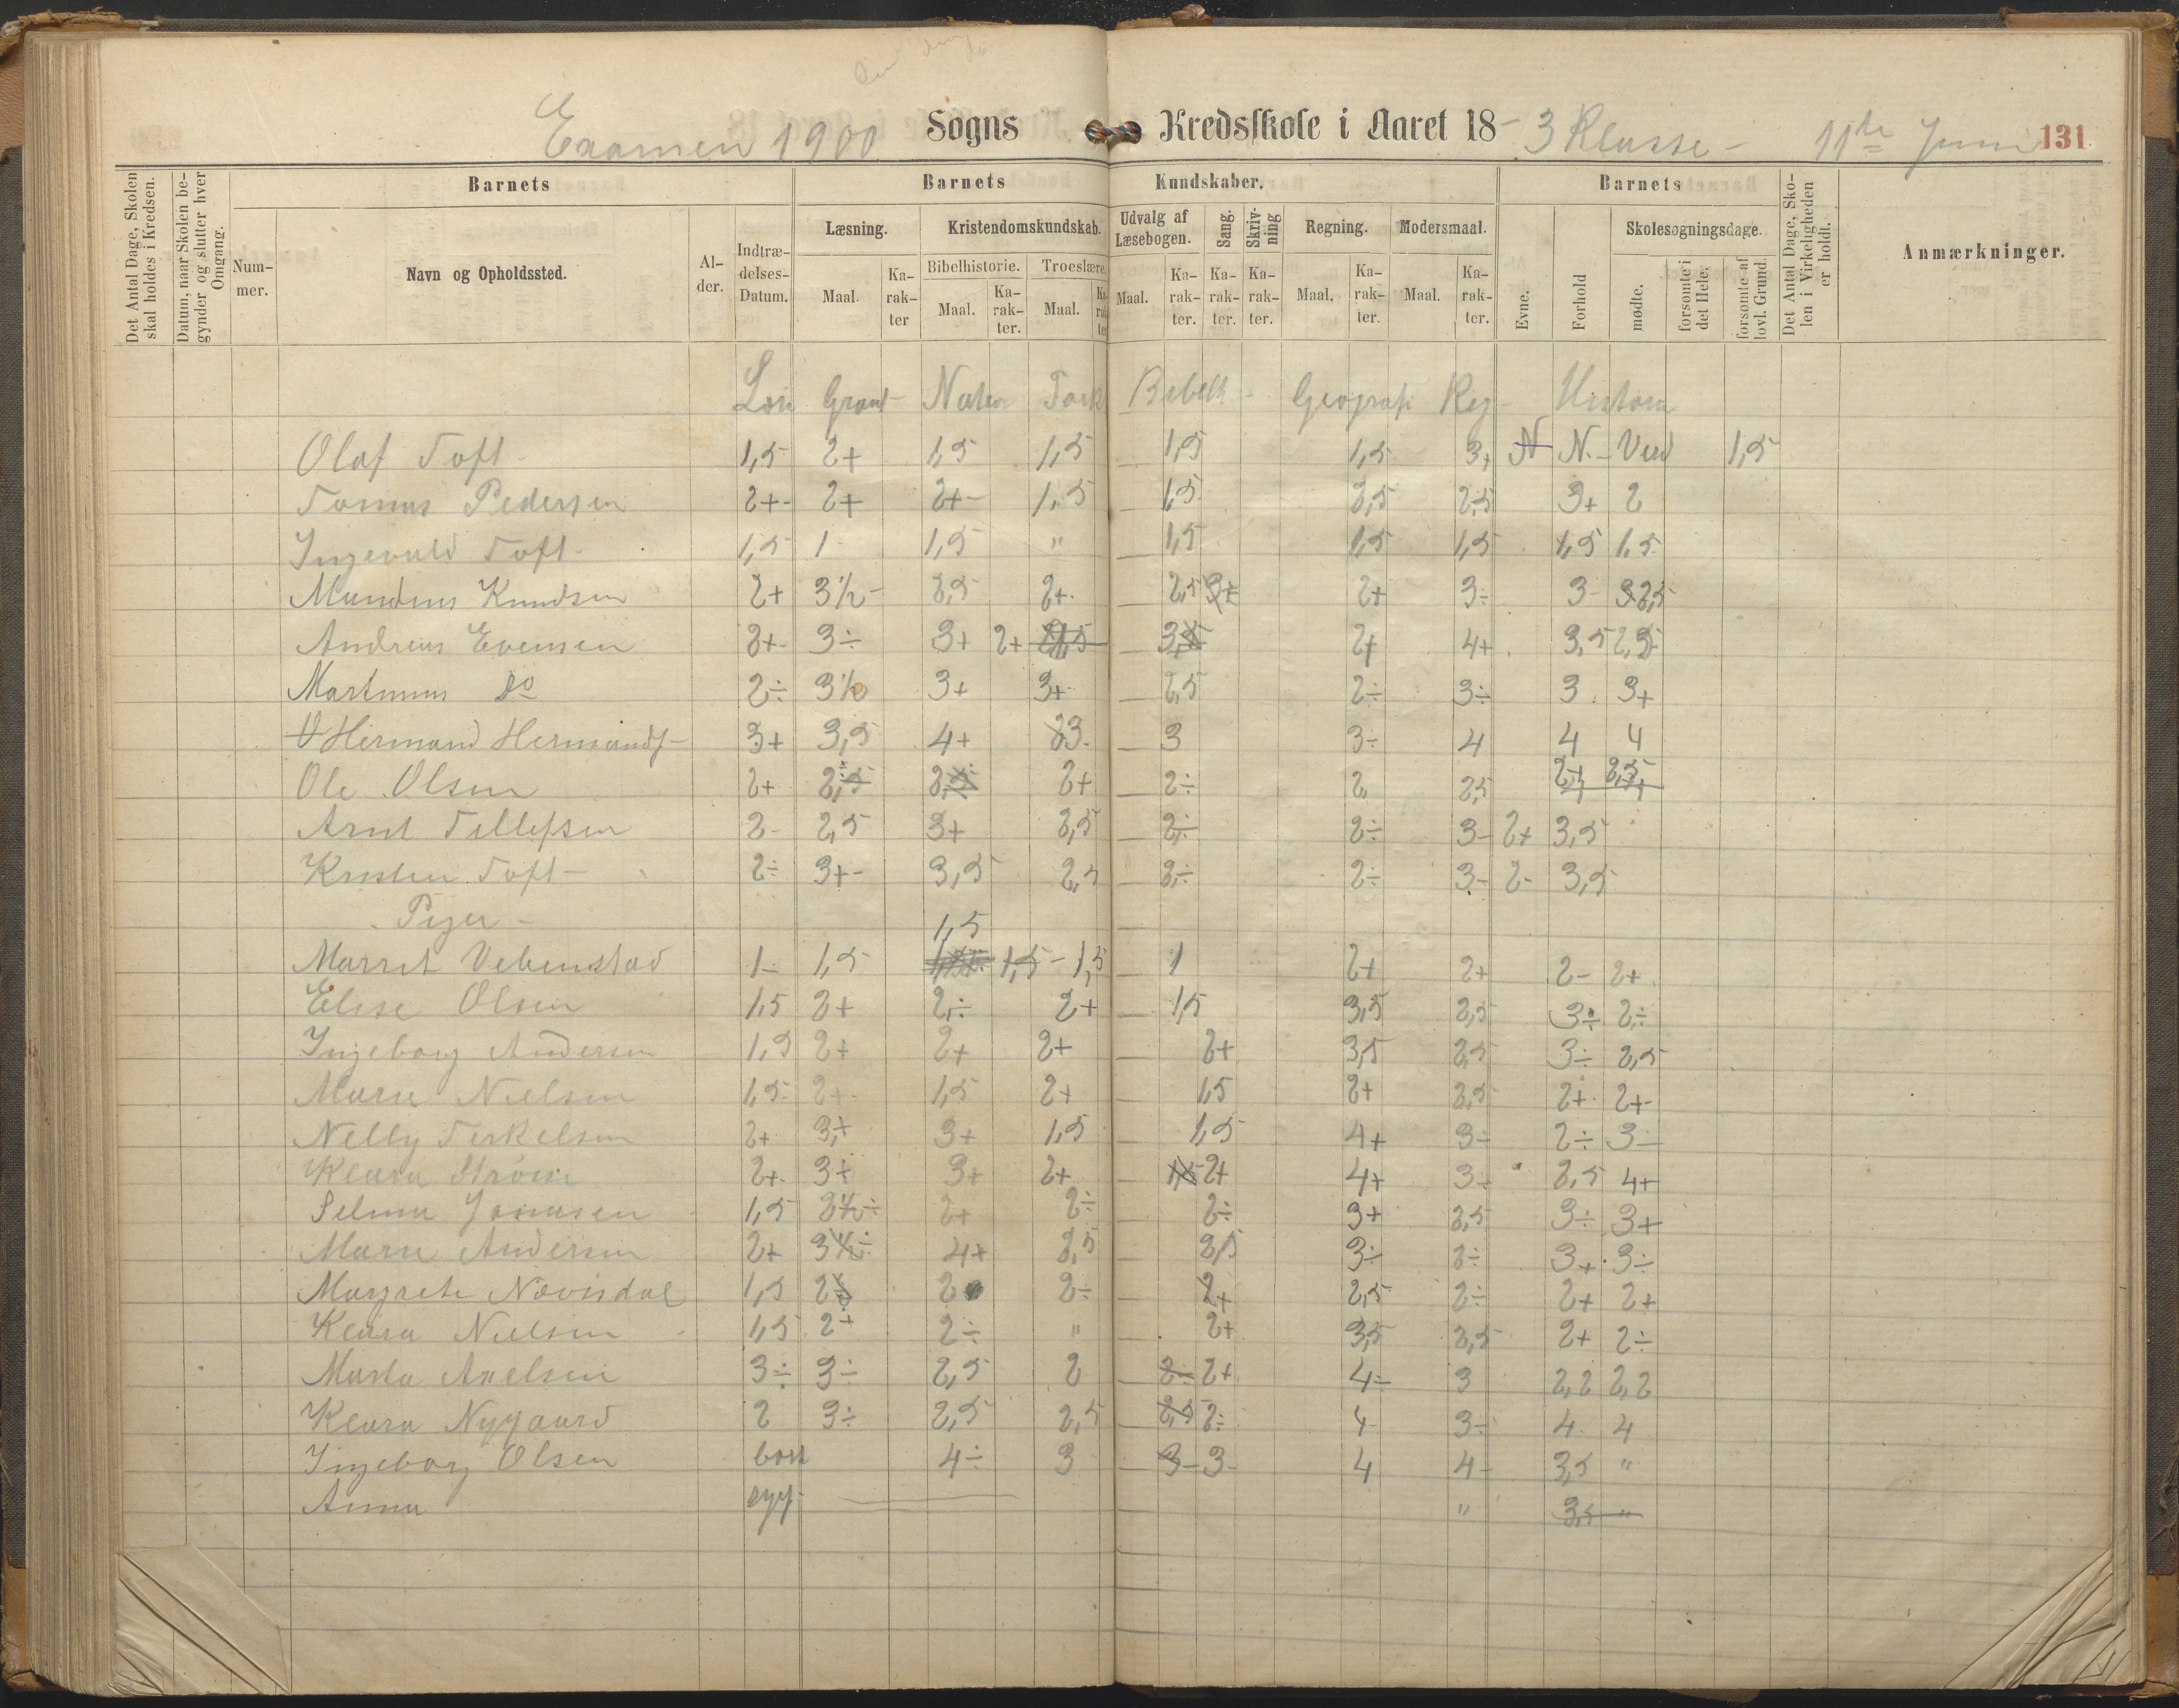 Examen 1900 Sogns Kredsskole i Aaret 18- 3 Klasse - 11te Juni 131
Det Antal Dage, Skolen skal holdes i Kredsen.
Datum, naar Skolen begynder og slutter hver Omgang.
Barnets
Nummer.
Navn og Opholdssted.
Alder.
Indtrædelses-Datum.
Barnets Kundskaber.
Læsning.
Maal. Karakter
Kristendomskundskab.
Bibelhistorie. Troeslære.
Maal. Karakter. Maal. Karakter
Udvalg af Læsebogen.
Maal. Karakter.
Sang. Karakter.
Skrivning Karakter.
Regning.
Maal. Karakter.
Modersmaal.
Maal. Karakter.
Barnets
Evne.
Forhold
Skolesøgningsdage.
mødte.
forsømte i det Hele.
forsømte af lovl. Grund.
Det Antal Dage, Skolen i Virkeligheden er holdt.
Anmærkninger.
Geografi Reg- Historie
Olaf Toft 1,5 2+ 1,5 1,5 1,5 1,5 3+ N N. 1,5
Tomas Pedersen 2+- 2+ 2+- 1,5 1,5 2,5 2,5 3+ 2
Ingevald Toft 1,5 1- 1,5 " 1,5 1,5 1,5 1,5 1,5
Knudsen 2+ 3½- 2,5 2+ 2,5 3+ 2+ 3÷ 3 2,5
Andreas Evensen 3+ 3÷ 3+ 2+ 2+ 4+ 3,5 2,5
Do 2÷ 3½ 3+ 3+ 2,5 2÷ 3÷ 3 3+
Hermand Hermands- 3+ 3,5 4+ 3 3 3÷ 4 4 4
Ole Olsen 2+ 2,5 2,5 2+ 2÷ 2 2,5 2+ 2,5
Arnt Tellefsen 2- 2,5 3+ 2,5 2÷ 2÷ 3- 2+ 3,5
Kristen Toft 2÷ 3+- 3,5 2,5 2÷ 2÷ 3- 2- 3,5
Piger -
1,5
Marret Vebenstad 1- 1,5 1,5 - 1,5 1 2+ 2+ 2- 2+
Elise Olsen 1,5 2+ 2÷ 2+ 1,5 3,5 2,5 3÷ 2÷
Ingeborg Andersen 1,5 2+ 2+ 2+ 2+ 3,5 2,5 3÷ 2,5
Marie Nielsen 1,5 2+ 1,5 2+ 1,5 2+ 2,5 2+ 2+
Nelly Terkelsen 2+ 3+ 3+ 1,5 1,5 4+ 3÷ 2÷ 3-
Klara Strøm 2+ 3÷ 3+ 2+ 1,5 2+ 4+ 3÷ 2,5 4+
Selma Jonasen 1,5 2½÷ 2+ 2÷ 2÷ 3+ 2,5 3÷ 3+
Marie Andersen 2+ 3½÷ 4+ 2,5 2,5 3÷ 2÷ 3+ 3÷
Margrete 1,5 2 2 2÷ 2+ 2,5 2÷ 2+ 2+
Klara Nielsen 1,5 2+ 2÷ " 2+ 3,5 2,5 2+ 2÷
Marta Axelsen 3÷ 3÷ 2,5 2 2- 2+ 4÷ 3 2,2 2,2
Klara Nygaard 2 3÷ 2,5 2,5 2,5 2÷ 4- 3÷ 4 4
Ingeborg Olsen bort 4÷ 3 3- 3- 4 4- 3,5 "
Anna syg- " 3,5 "